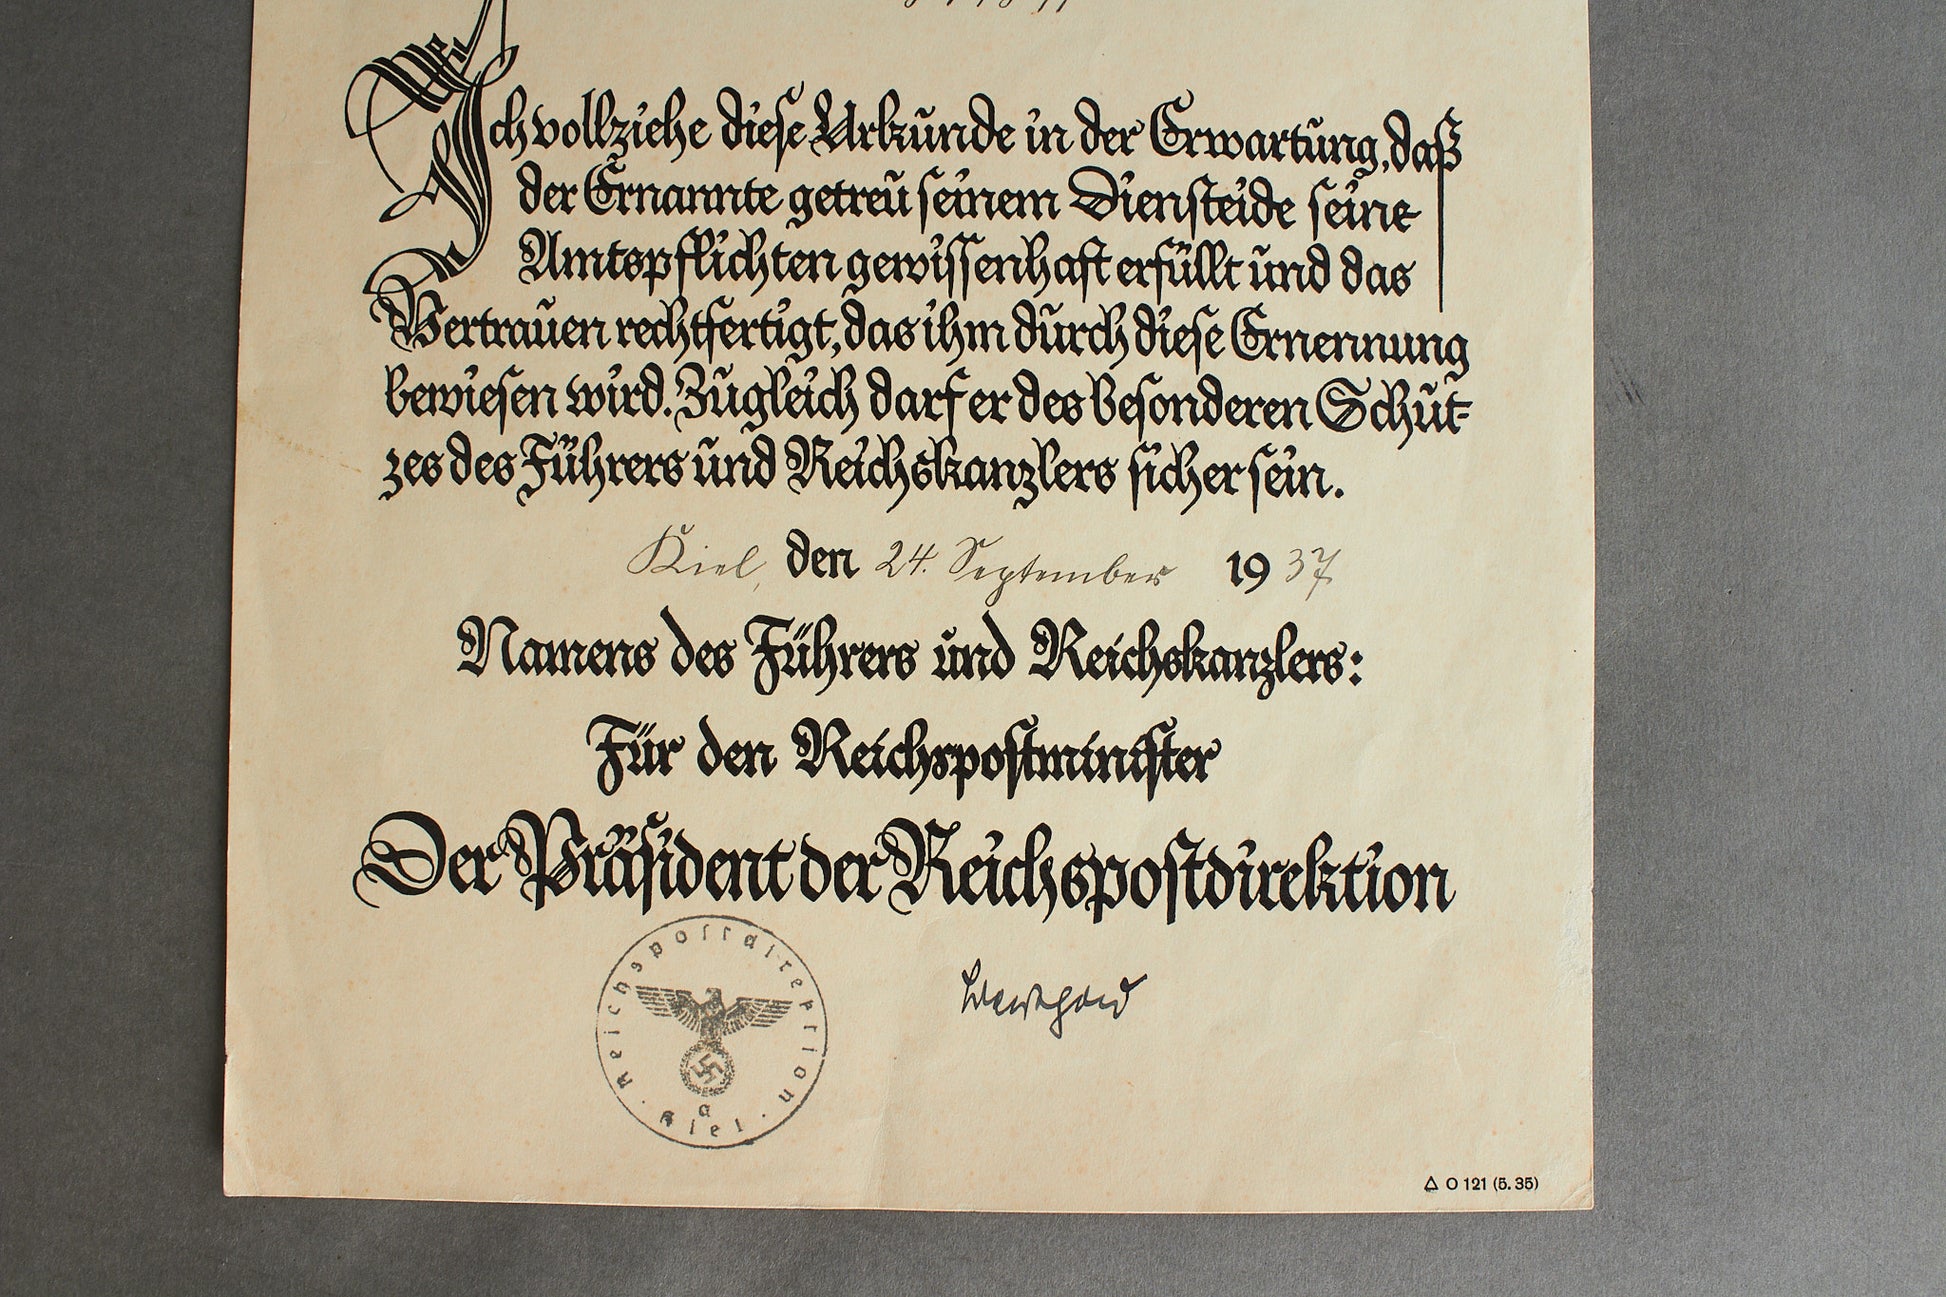 Ich vollziehe diese Urkunde in der Erwartung, daß
der Ernannte getreu seinem Diensteide seine
Amtspflichten gewissenhaft erfüllt und das
Vertrauen rechtfertigt, das ihm durch diese Ernennung
bewiesen wird. Zugleich darf er des besonderen Schut-
zes des Führers und Reichskanzlers sicher sein.
Kiel, den 24. September 1937
Namens des Führers und Reichskanzlers:
Für den Reichspostminister
Der Präsident der Reichspostdirektion
Reichspostdirektion
a
Kiel
△ O 121 (5. 35)